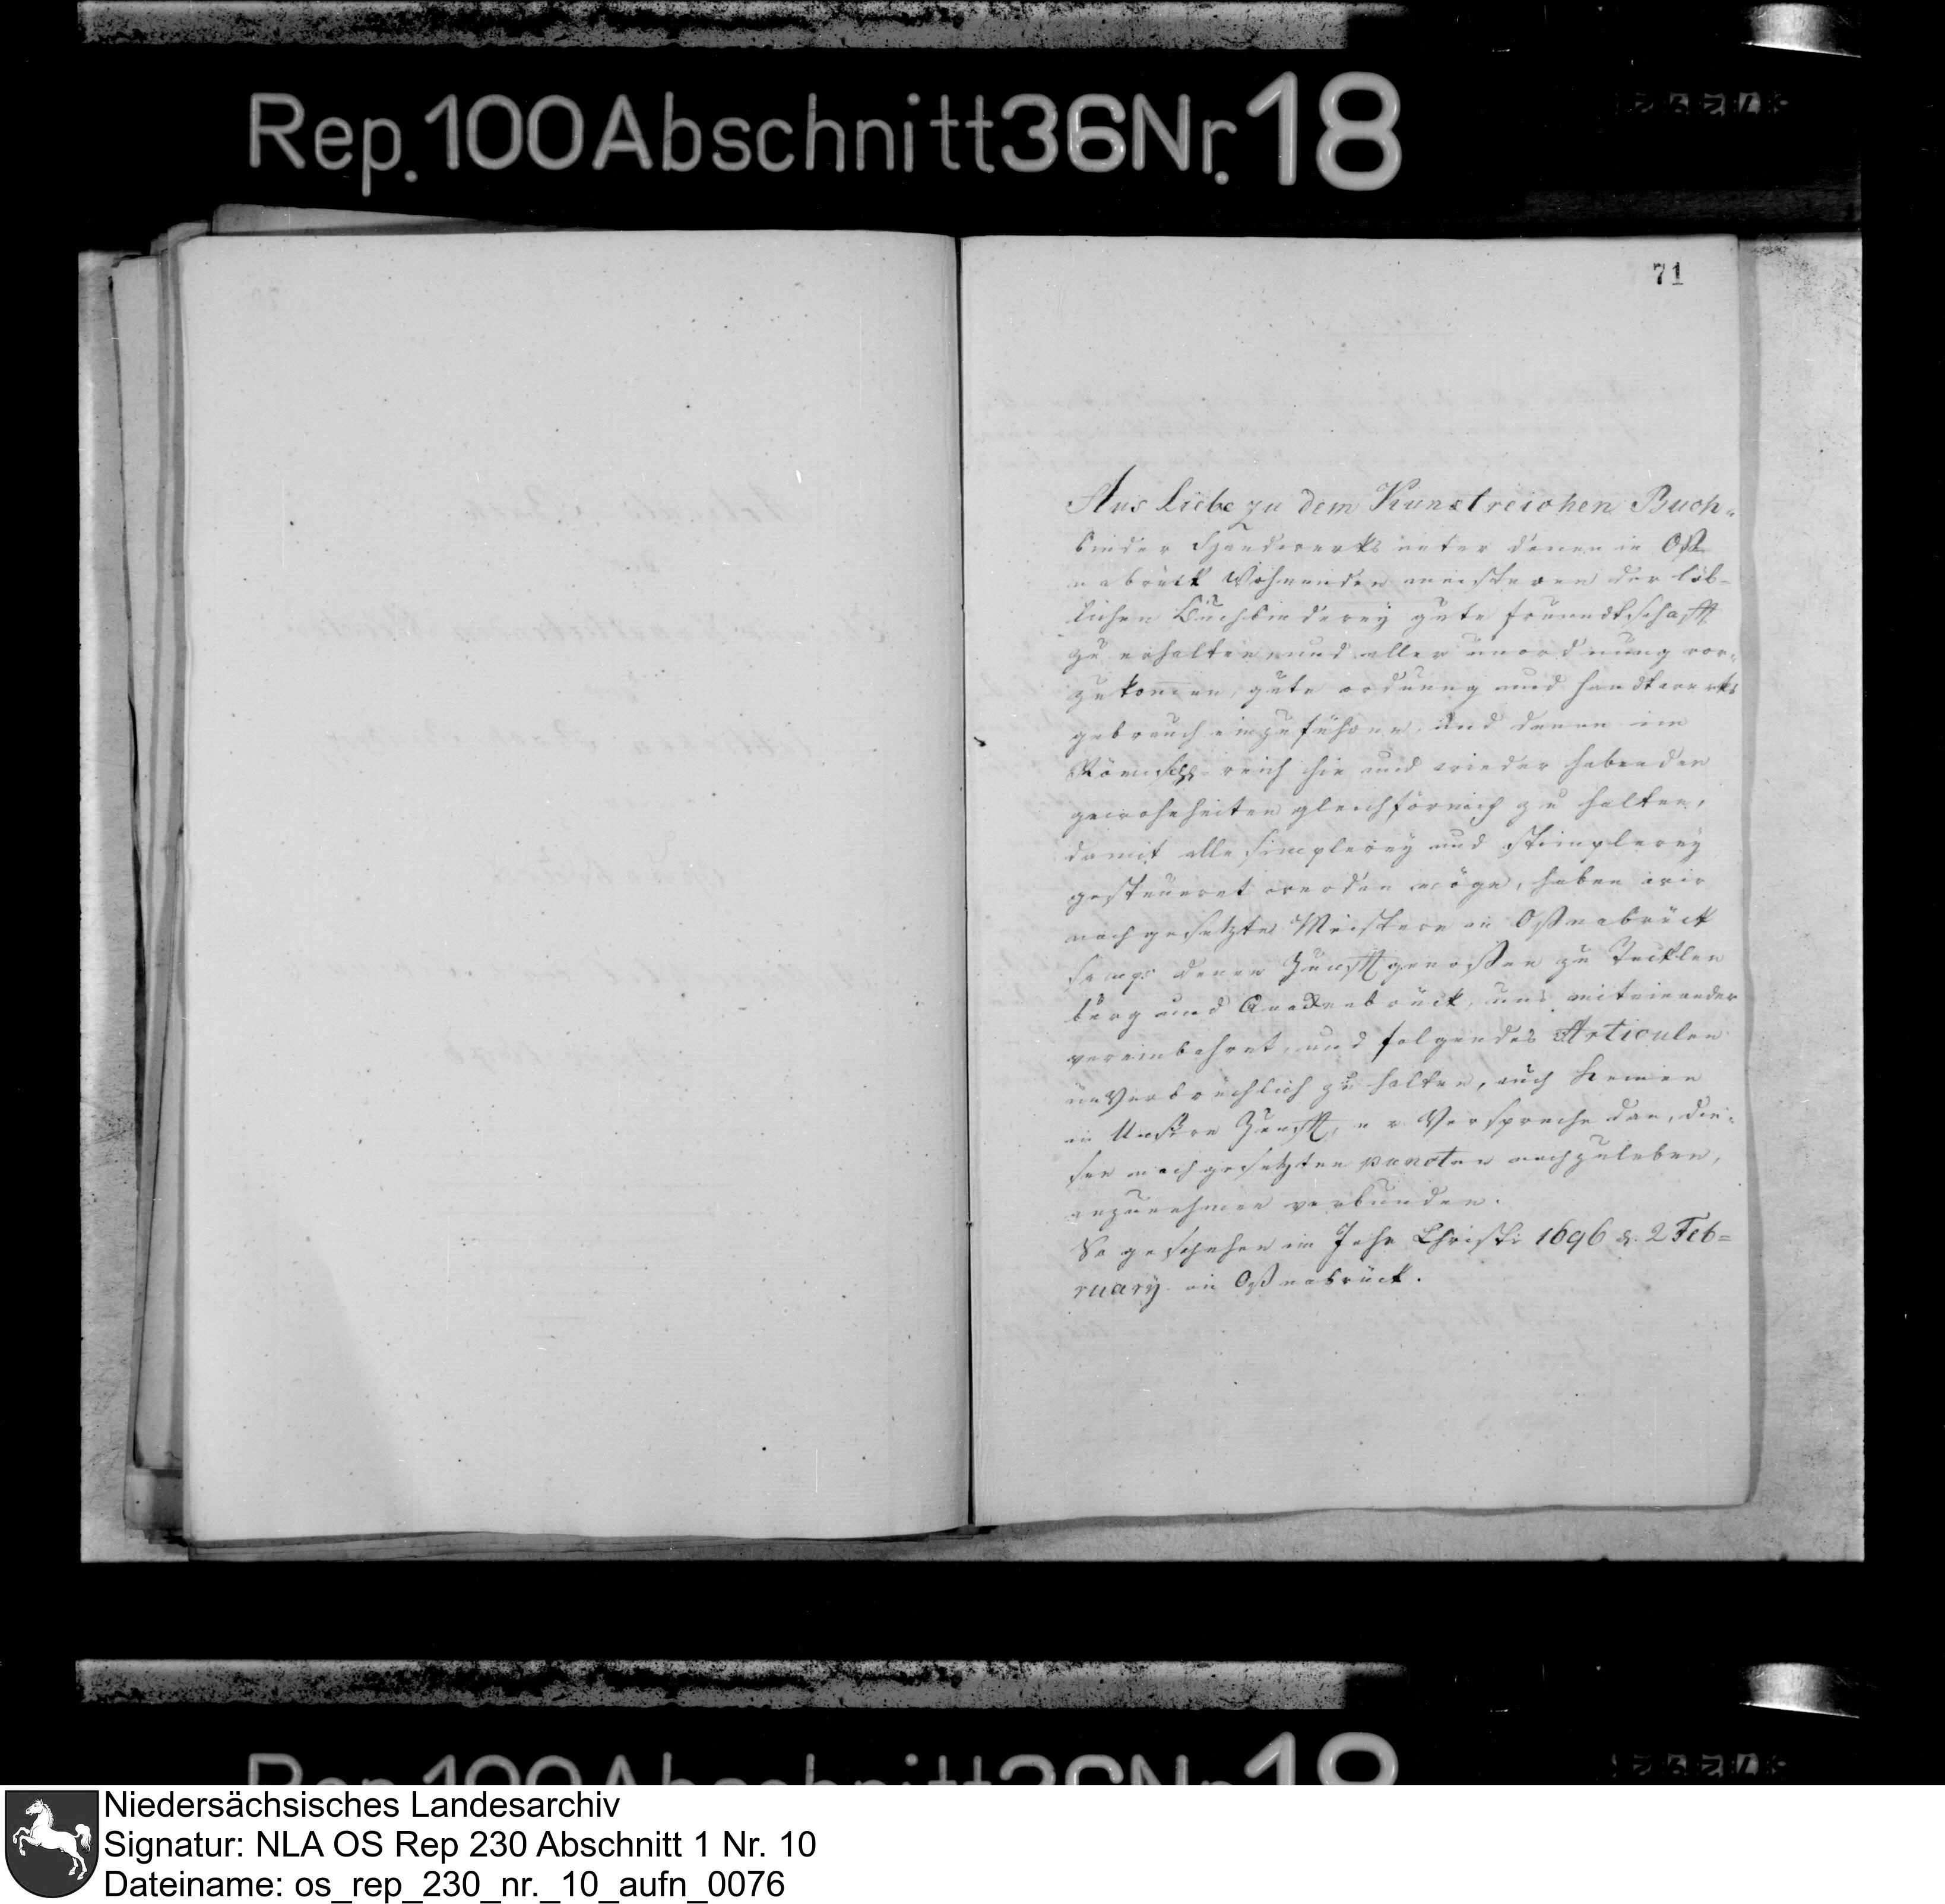 Rep. 100 Abschnitt 36 Nr. 18
71
Aus Liebe zu dem Kunstreichen Buch-
binder Handtwerks unter denen in Oß
nabrück Wohnenden meisteren der löb-
lichen Buchbinderey gute freundtschafft
zu erhalten, und aller unordnung vor-
zukommen, gute ordnung und handtwerks
gebrauch einzuführen, und denen im
Römisch. reich hin und wieder habenden
gewohnheiten gleichförmig zu halten,
damit alle simplerey und stümplerey
gesteueret werden möge, haben wir
nachgesetzte Meistere in Oßnabrück
samps denen Zunfftgenoßen zu Tecklen
burg und Quackenbrück, uns miteinander
vereinbahret, und folgendes Articulen
unVerbrüchlich zu halten, auch keinen
in Unsere Zunfft, er Verspreche dan, die-
sen nachgesetzten puncten nachzuleben,
anzunehmen verbunden.
So geschehen im Jahr Christi 1696 d. 2 Feb=
ruary in Oßnabrück.
Niedersächsisches Landesarchiv
Signatur: NLA OS Rep 230 Abschnitt 1 Nr. 10
Dateiname: os_rep_230_nr._10_aufn_0076